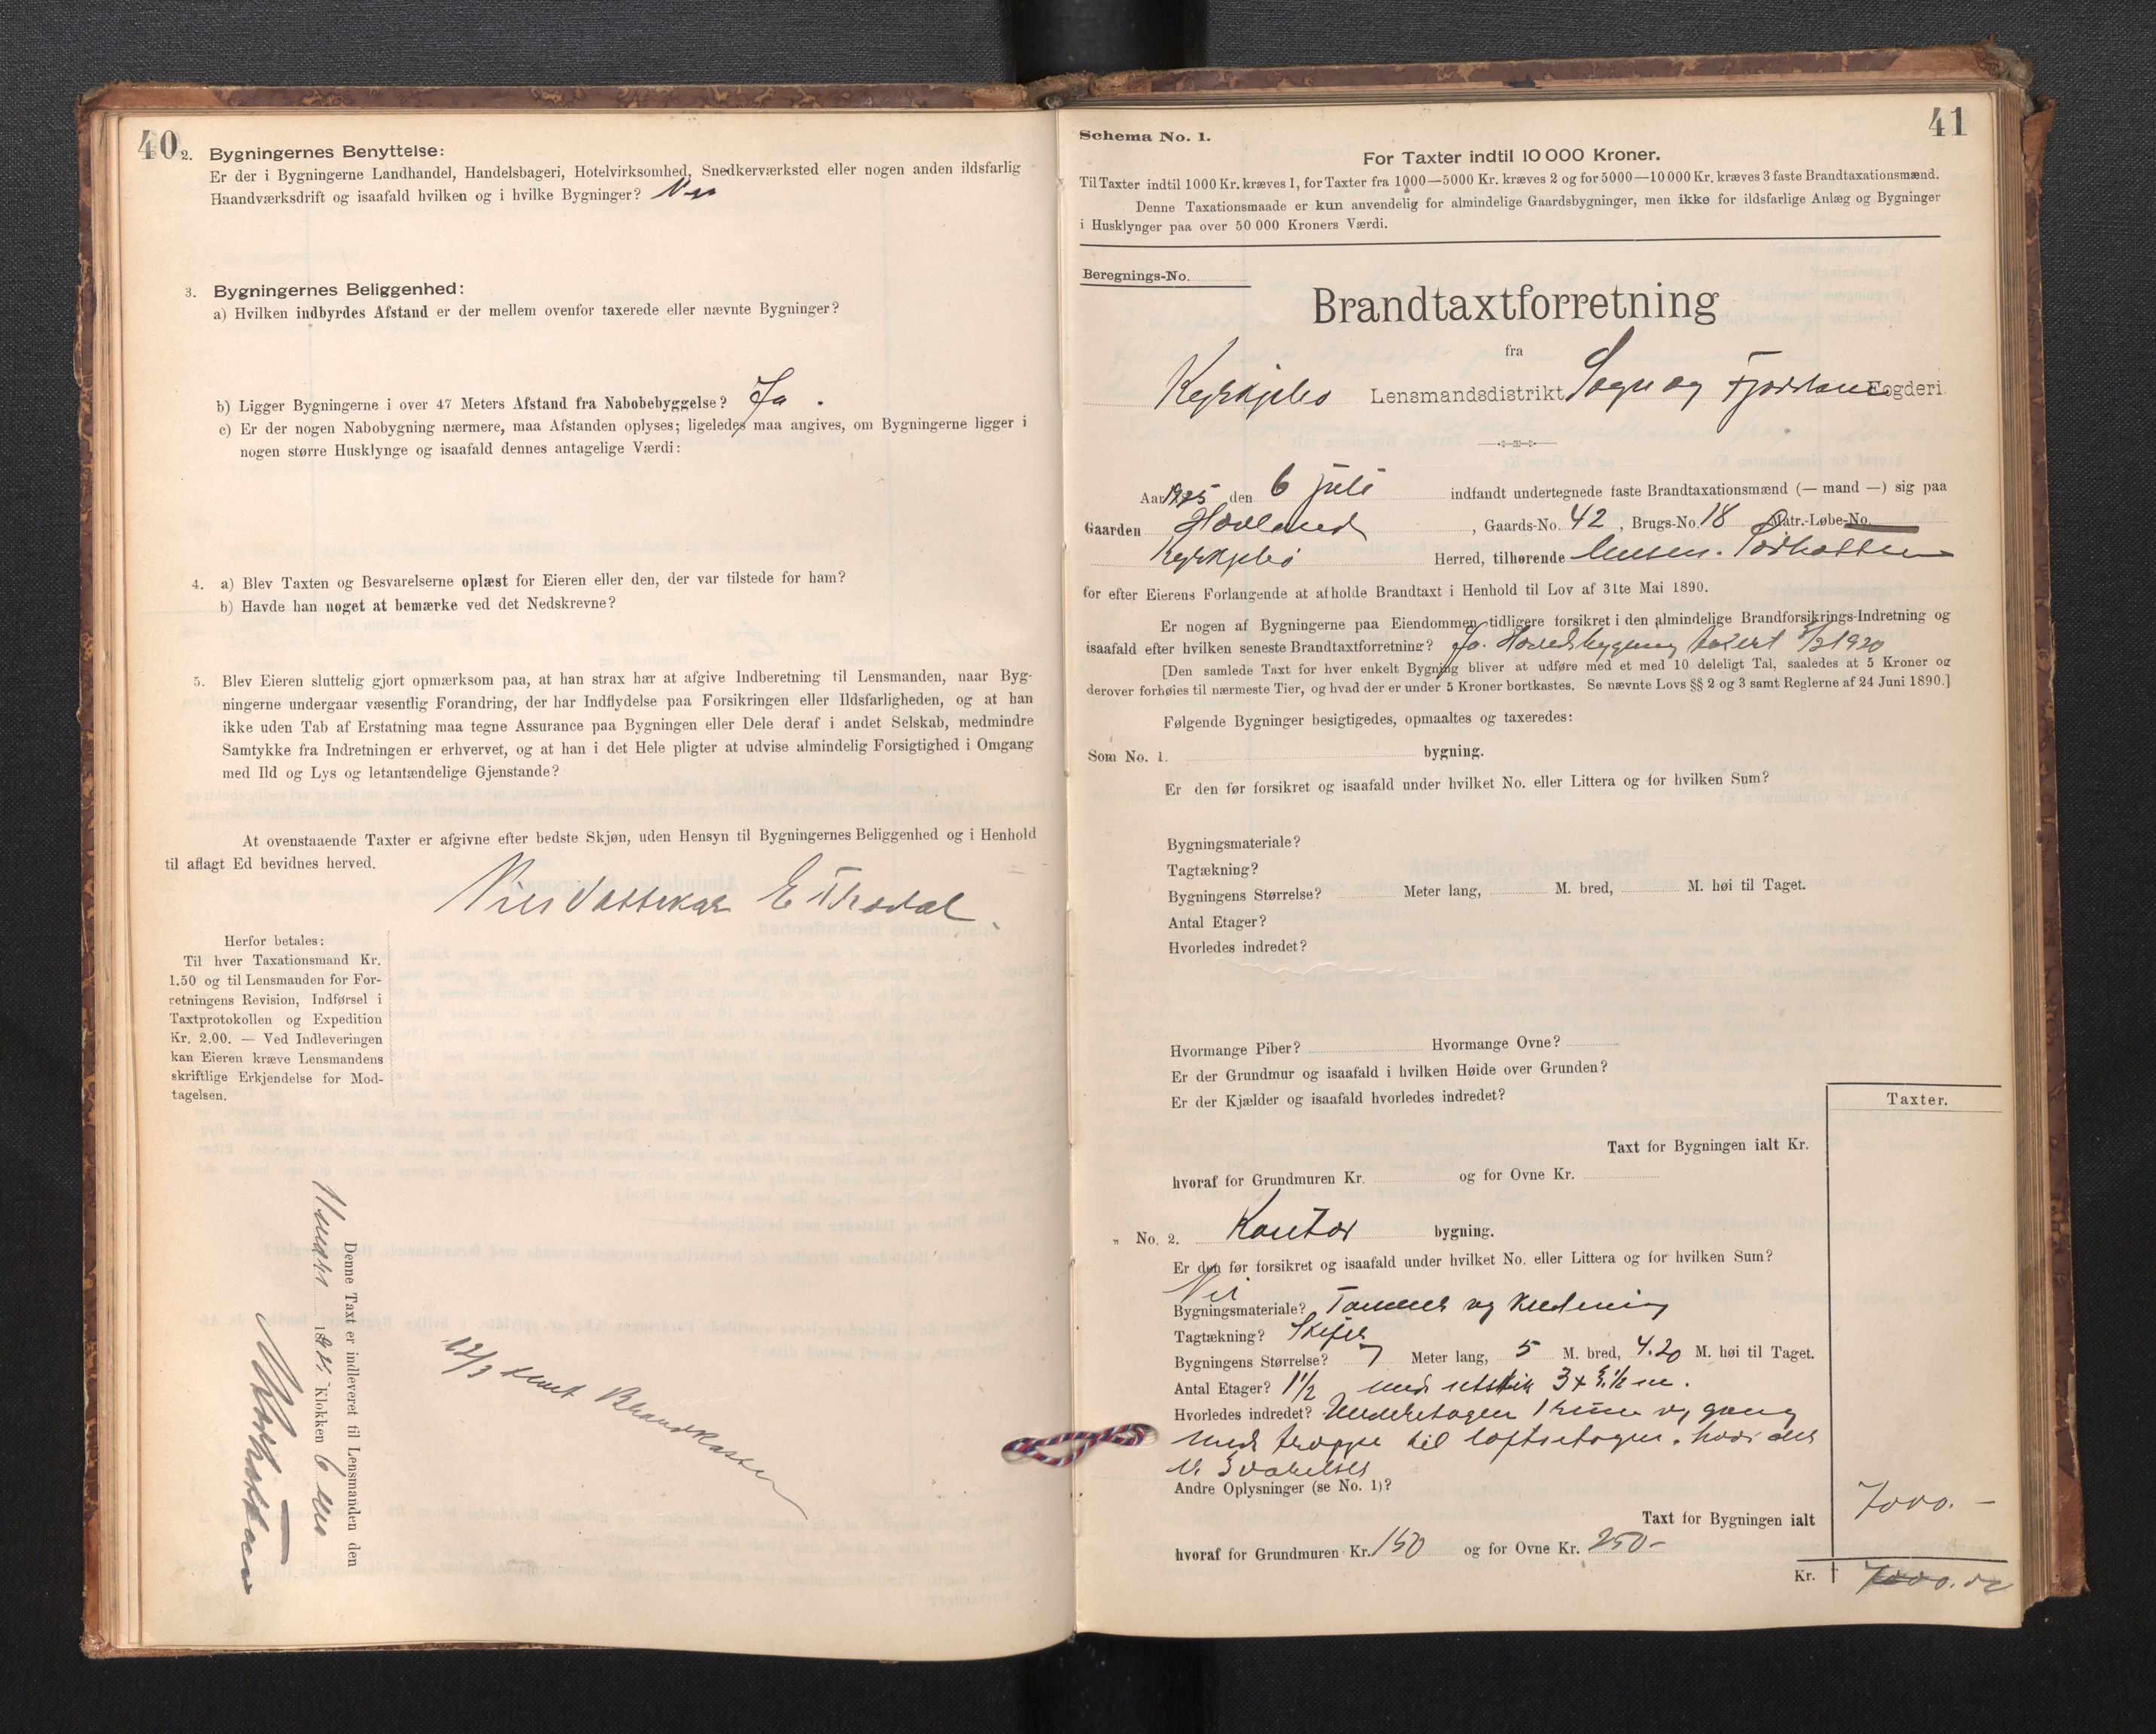 40
2. Bygningernes Benyttelse:
Er der i Bygningerne Landhandel, Handelsbageri, Hotelvirksomhed, Snedkerværksted eller nogen anden ildsfarlig
Haandværksdrift og isaafald hvilken og i hvilke Bygninger? Nei
3. Bygningernes Beliggenhed:
a) Hvilken indbyrdes Afstand er der mellem ovenfor taxerede eller nævnte Bygninger?
b) Ligger Bygningerne i over 47 Meters Afstand fra Nabobebyggelse? Ja.
c) Er der nogen Nabobygning nærmere, maa Afstanden oplyses; ligeledes maa angives, om Bygningerne ligger i
nogen større Husklynge og isaafald dennes antagelige Værdi:
4. a) Blev Taxten og Besvarelserne oplæst for Eieren eller den, der var tilstede for ham?
b) Havde han noget at bemærke ved det Nedskrevne?
5. Blev Eieren sluttelig gjort opmærksom paa, at han strax har at afgive Indberetning til Lensmanden, naar Byg-
ningerne undergaar væsentlig Forandring, der har Indflydelse paa Forsikringen eller Ildsfarligheden, og at han
ikke uden Tab af Erstatning maa tegne Assurance paa Bygningen eller Dele deraf i andet Selskab, medmindre
Samtykke fra Indretningen er erhvervet, og at han i det Hele pligter at udvise almindelig Forsigtighed i Omgang
med Ild og Lys og letantændelige Gjenstande?
At ovenstaaende Taxter er afgivne efter bedste Skjøn, uden Hensyn til Bygningernes Beliggenhed og i Henhold
til aflagt Ed bevidnes herved.
Herfor betales:
Til hver Taxationsmand Kr.
1.50 og til Lensmanden for For-
retningens Revision, Indførsel i
Taxtprotokollen og Expedition
Kr. 2.00. — Ved Indleveringen
kan Eieren kræve Lensmandens
skriftlige Erkjendelse for Mod-
tagelsen.
Denne Taxt er indleveret til Lensmanden den
Klokken 6
12/3 sendt Brandkassen
41
Schema No. 1.
For Taxter indtil 10 000 Kroner.
Til Taxter indtil 1000 Kr. kræves 1, for Taxter fra 1000—5000 Kr. kræves 2 og for 5000—10 000 Kr. kræves 3 faste Brandtaxationsmænd.
Denne Taxationsmaade er kun anvendelig for almindelige Gaardsbygninger, men ikke for ildsfarlige Anlæg og Bygninger
i Husklynger paa over 50 000 Kroners Værdi.
Beregnings-No.
Brandtaxtforretning
fra
Kyrkjebø Lensmandsdistrikt Sogn og Fjordane Fogderi
Aar 1925 den 6 juli indfandt undertegnede faste Brandtaxationsmænd (— mand —) sig paa
Gaarden Hovland, Gaards-No. 42, Brugs-No. 18 Matr.-Løbe-No.
Kyrkjebø Herred, tilhørende
for efter Eierens Forlangende at afholde Brandtaxt i Henhold til Lov af 31te Mai 1890.
Er nogen af Bygningerne paa Eiendommen tidligere forsikret i den almindelige Brandforsikrings-Indretning og
isaafald efter hvilken seneste Brandtaxtforretning? Ja. Hovedbygning taxert 1920
[Den samlede Taxt for hver enkelt Bygning bliver at udføre med et med 10 deleligt Tal, saaledes at 5 Kroner og
derover forhøies til nærmeste Tier, og hvad der er under 5 Kroner bortkastes. Se nævnte Lovs §§ 2 og 3 samt Reglerne af 24 Juni 1890.]
Følgende Bygninger besigtigedes, opmaaltes og taxeredes:
Som No. 1. bygning.
Er den før forsikret og isaafald under hvilket No. eller Littera og for hvilken Sum?
Bygningsmateriale?
Tagtækning?
Bygningens Størrelse? Meter lang, M. bred, M. høi til Taget.
Antal Etager?
Hvorledes indredet?
Hvormange Piber? Hvormange Ovne?
Er der Grundmur og isaafald i hvilken Høide over Grunden?
Er der Kjælder og isaafald hvorledes indredet?
Taxter.
Taxt for Bygningen ialt Kr.
hvoraf for Grundmuren Kr. og for Ovne Kr.
„ No. 2. Kontor bygning.
Er den før forsikret og isaafald under hvilket No. eller Littera og for hvilken Sum?
Nei
Bygningsmateriale? Tømmer og kledning
Tagtækning? Skifer
Bygningens Størrelse? 7 Meter lang, 5 M. bred, 4.20 M. høi til Taget.
Antal Etager? 1 1/2 med utstik 3 x 3 1/2 m.
Hvorledes indredet? Underetagen 1 rum og gang
med trappe til loftsetagen, hvor der
er 3 værelser
Andre Oplysninger (se No. 1)?
Taxt for Bygningen ialt 7000.—
hvoraf for Grundmuren Kr. 150 og for Ovne Kr. 250-
Kr. 7000.00